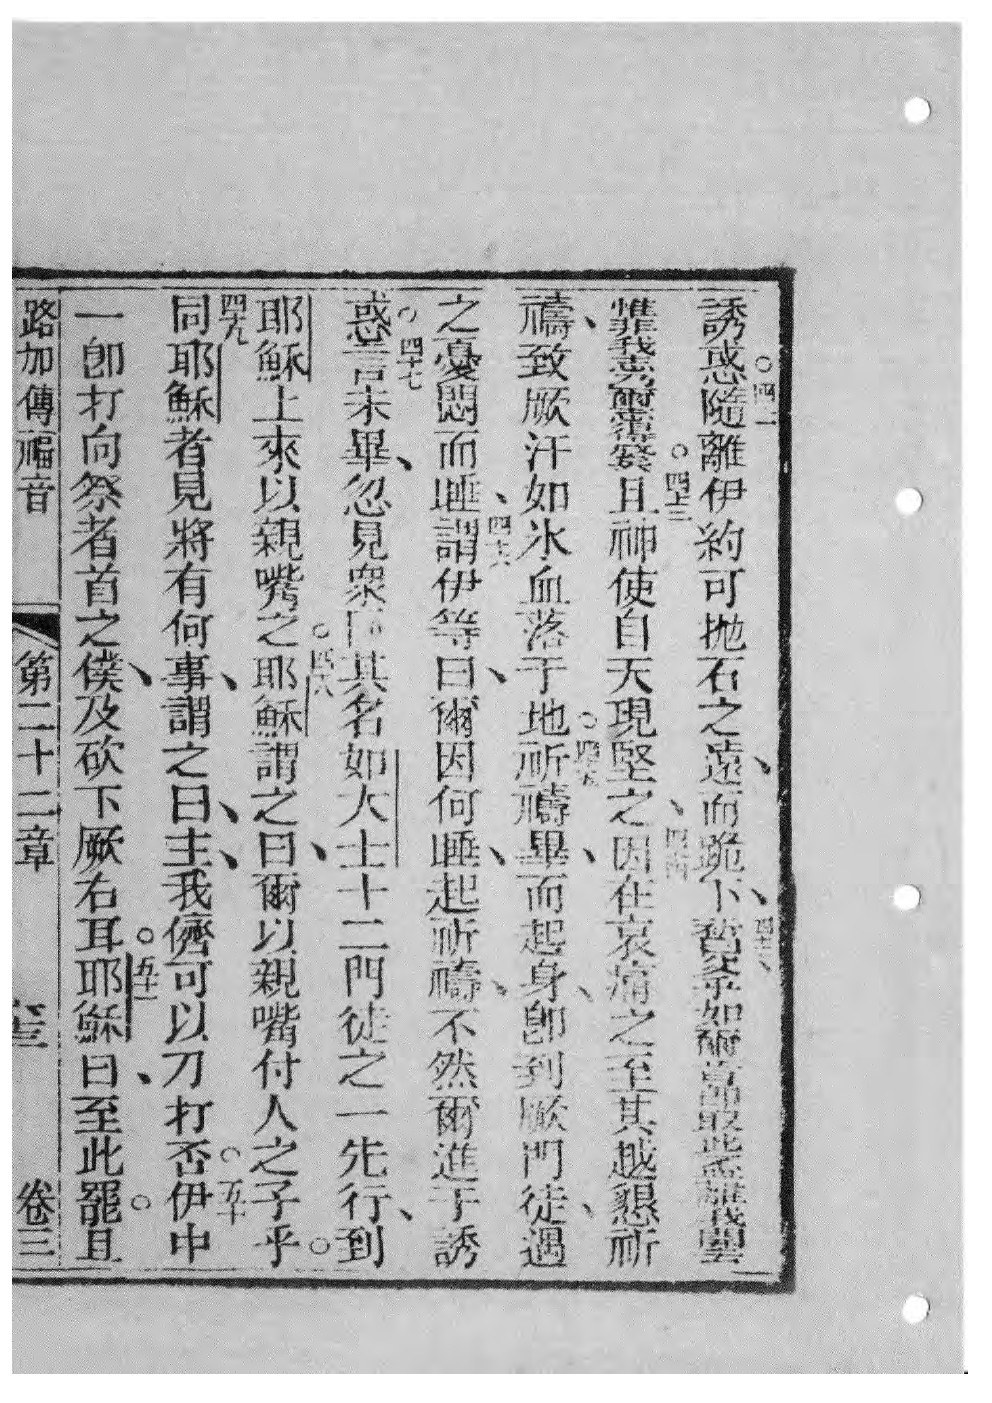 誘惑隨離伊約可抛石之遠而跪下曰父乎如爾肯卽取此盃離我
惟我旨爾旨且神使自天現堅之因在哀痛之至其越懇祈
禱致厥汗如氷血落于地祈禱畢而起身卽到厥門徒遇
之憂悶而睡謂伊等曰爾因何睡起祈禱不然爾進于誘
惑言未畢忽見衆其名如大士十二門徒之一先行到
耶穌上來以親嘴之耶穌謂之曰爾以親嘴付人之子乎
同耶穌者見將有何事謂之曰主我儕可以刀打否伊中
一卽打向祭者首之僕及砍下厥右耳耶穌曰至此罷且
路加傳福音 第二十二章 卷三